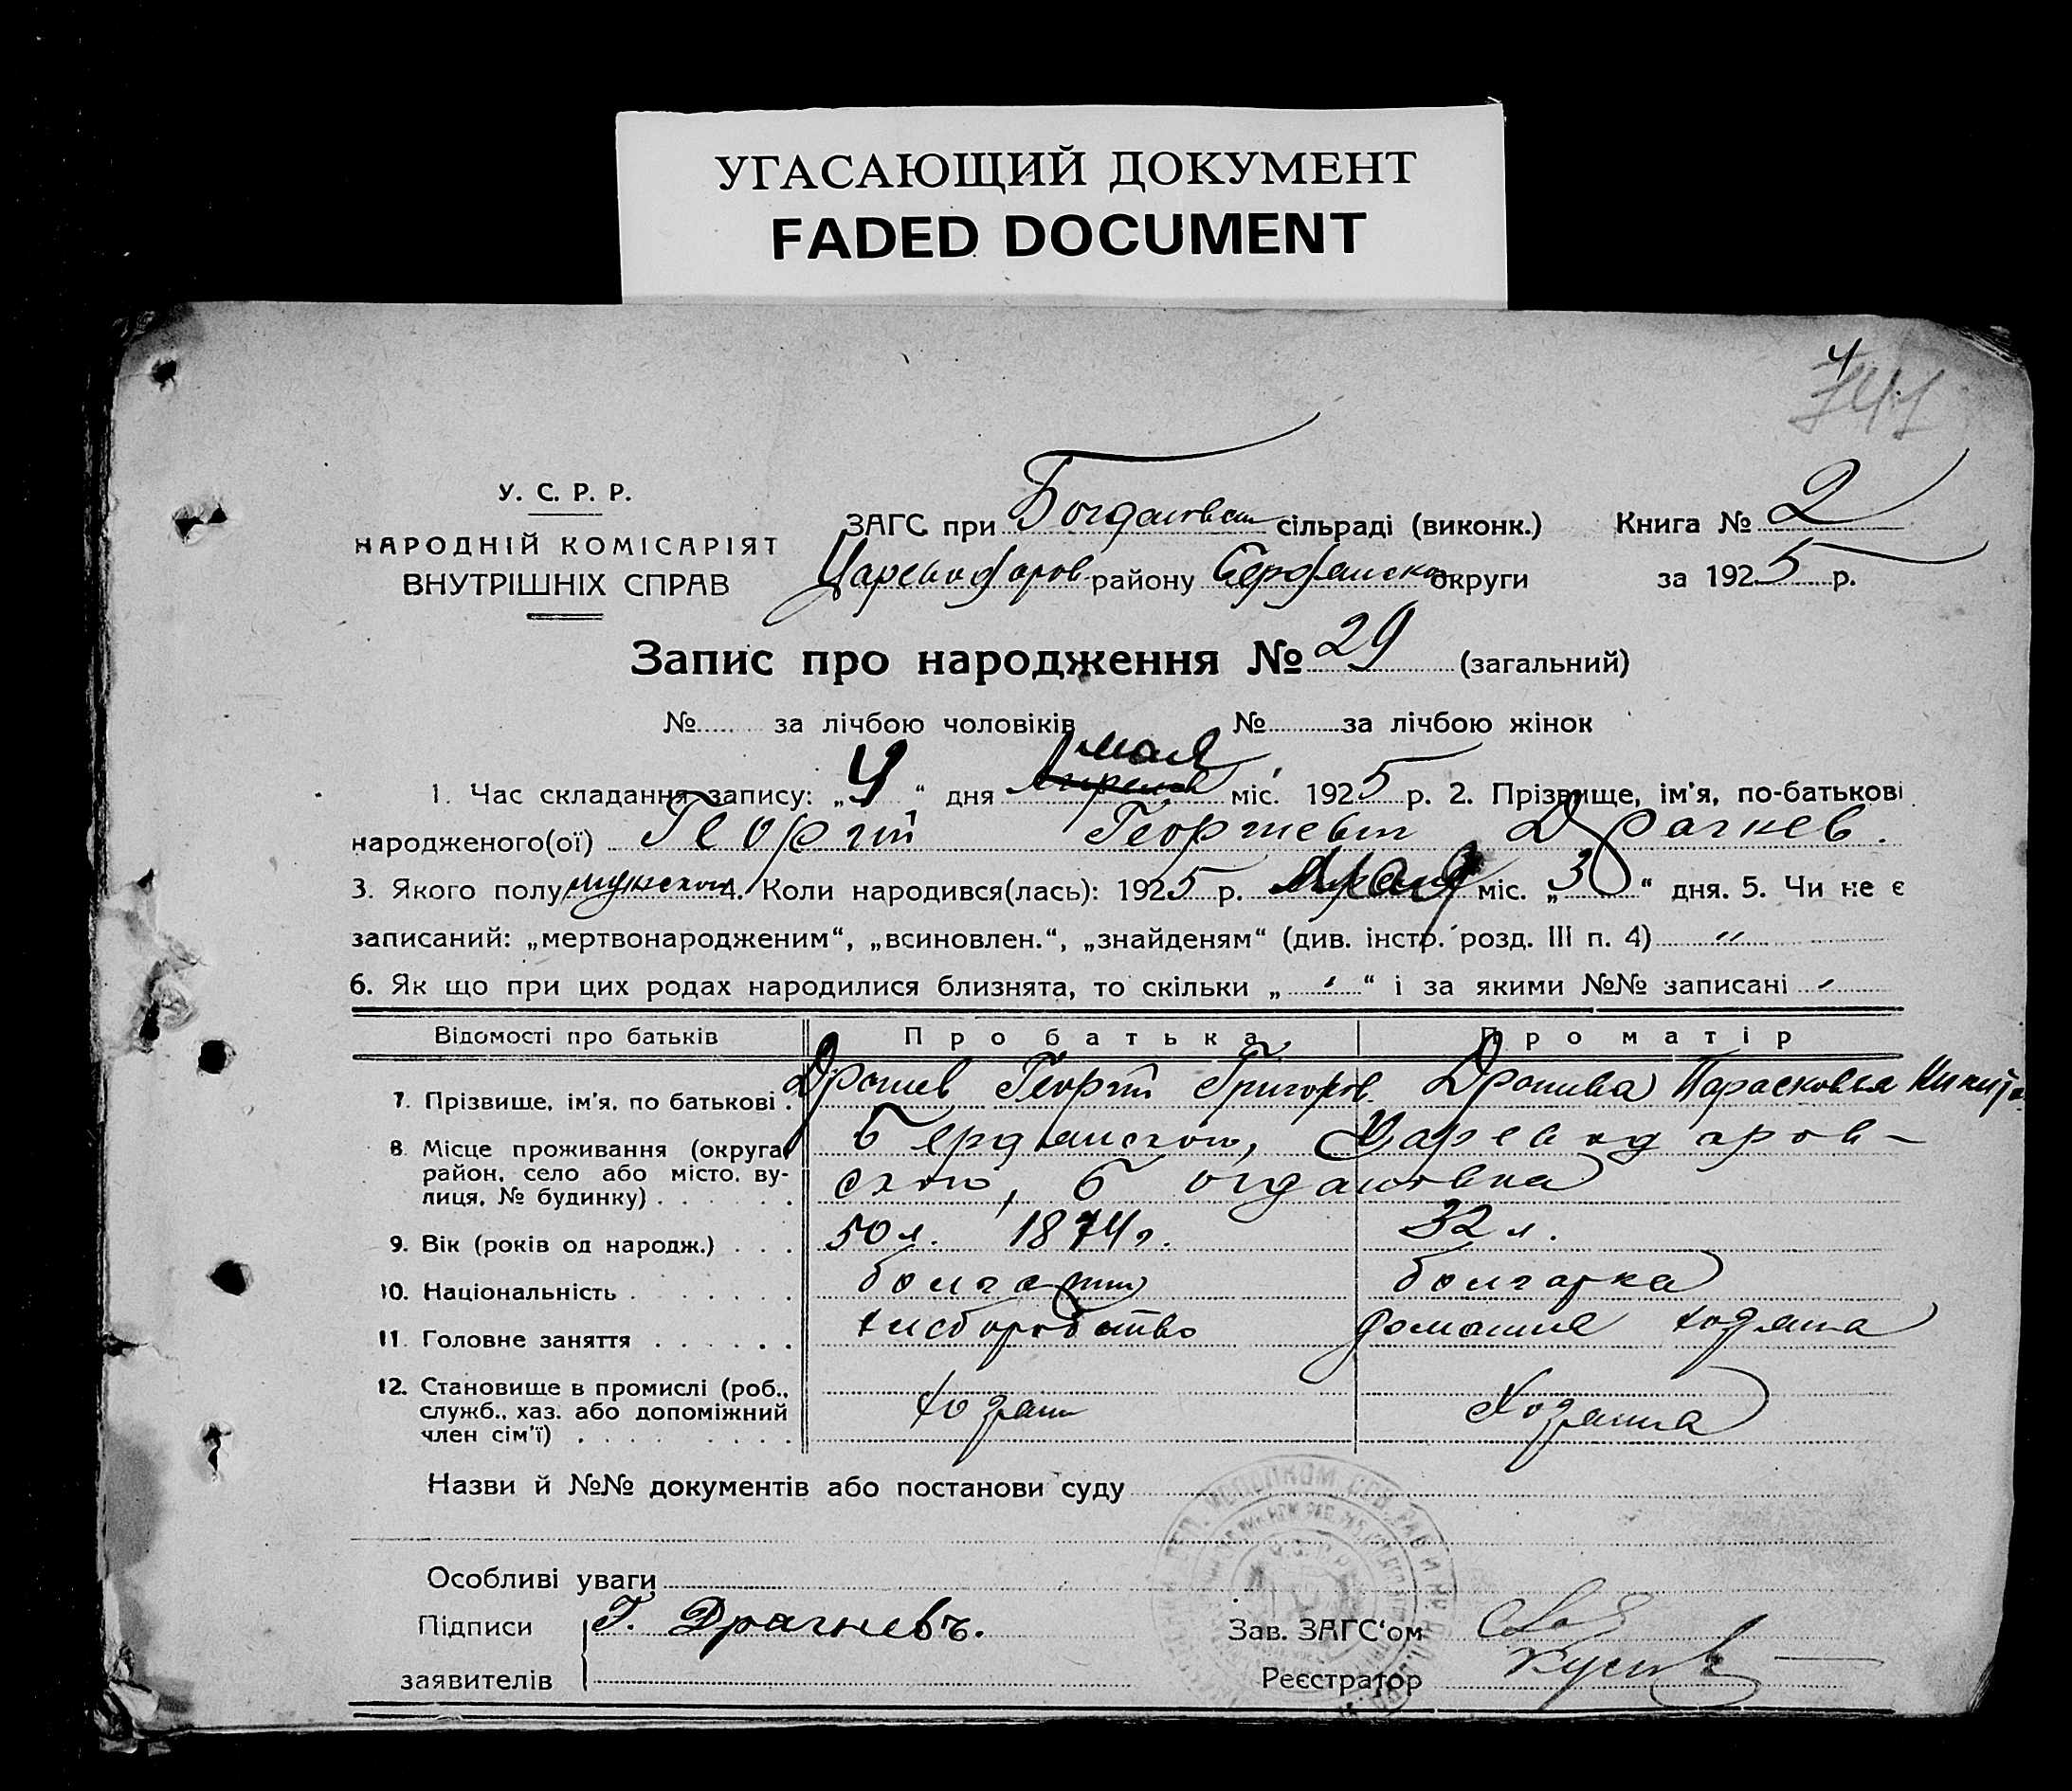 УГАСАЮЩИЙ ДОКУМЕНТ
FADED DOCUMENT
4
741
У. С. Р. Р.
НАРОДНІЙ КОМІСАРІЯТ
ВНУТРІШНІХ СПРАВ
ЗАГС при Богдановск сільраді (виконк.) Книга № 2
района Бердянско округи за 1925 р.
Запис про народження № 29 (загальний)
№ за лічбою чоловіків № за лічбою жінок
1. Час складання запису: „4“ дня мая міс. 1925 р. 2. Прізвище, ім'я, по-батькові
народженого(ої) Георгій Георгиевич Драгнев.
3. Якого полу мужского 4. Коли народився(лась): 1925 р. мая міс. „3“ дня. 5. Чи не є
записаний: „мертвонародженим“, „всиновлен.“, „знайденям“ (див. інстр. розд. III п. 4) "
6. Як що при цих родах народилися близнята, то скільки „ “ і за якими №№ записані
Відомості про батьків Про батька Про матір
7. Прізвище, ім'я, по батькові . Драгнев Георгій Григоров. Драгнева Парасковия Никит
8. Місце проживання (округа, район, село або місто, вулиця, № будинку) . . . Бердянского, Цареводаров-
ского, Богдановка
9. Вік (років од народж.) . . . 50 л. 1874 г. 32 л.
10. Національність . . . . . . . болгарин болгарка
11. Головне заняття . . . . . . хлеборобство домашня хозяйка
12. Становище в промислі (роб.,
служб., хаз. або допоміжний
член сім'ї) . . . . . . . . хозяин Хозяйка
Назви й №№ документів або постанови суду
Особливі уваги
Підписи Г. Драгневъ. Зав. ЗАГС'ом
заявителів Реєстратор